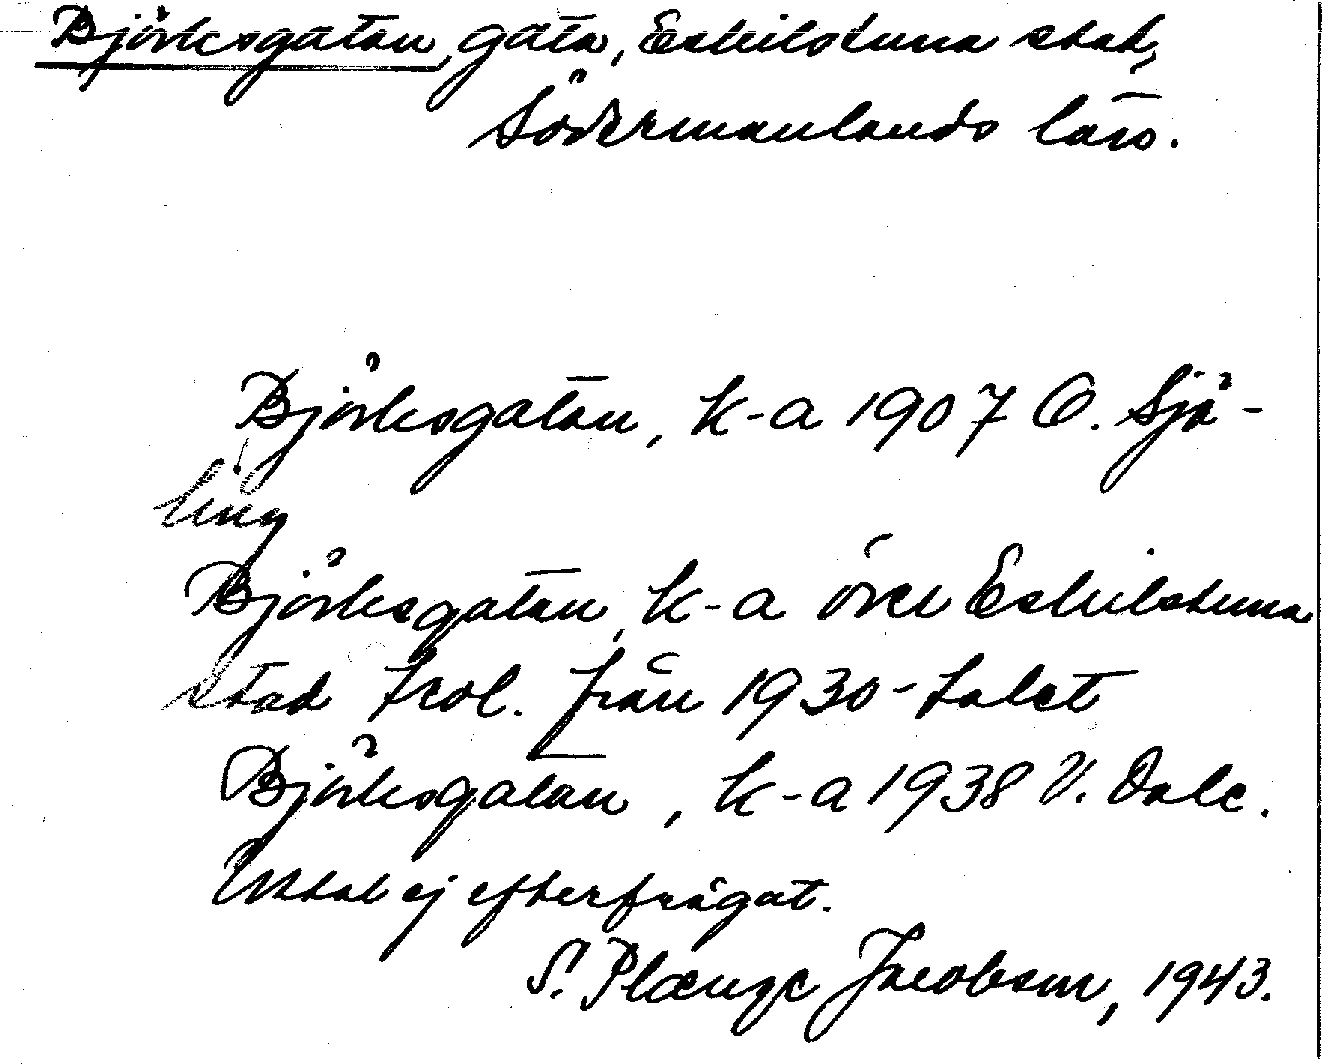 Björksgatan, gata, Eskilstuna stad,
Södermanlands län.
Björksgatan, k-a 1907 O. Sjö-
ling
Björksgatan, k-a över Eskilstuna
stad trol. från 1930-talet
Björksgatan, k-a 1938 V. Dale.
Uttal ej efterfrågat.
S. Plænge Jacobson, 1943.